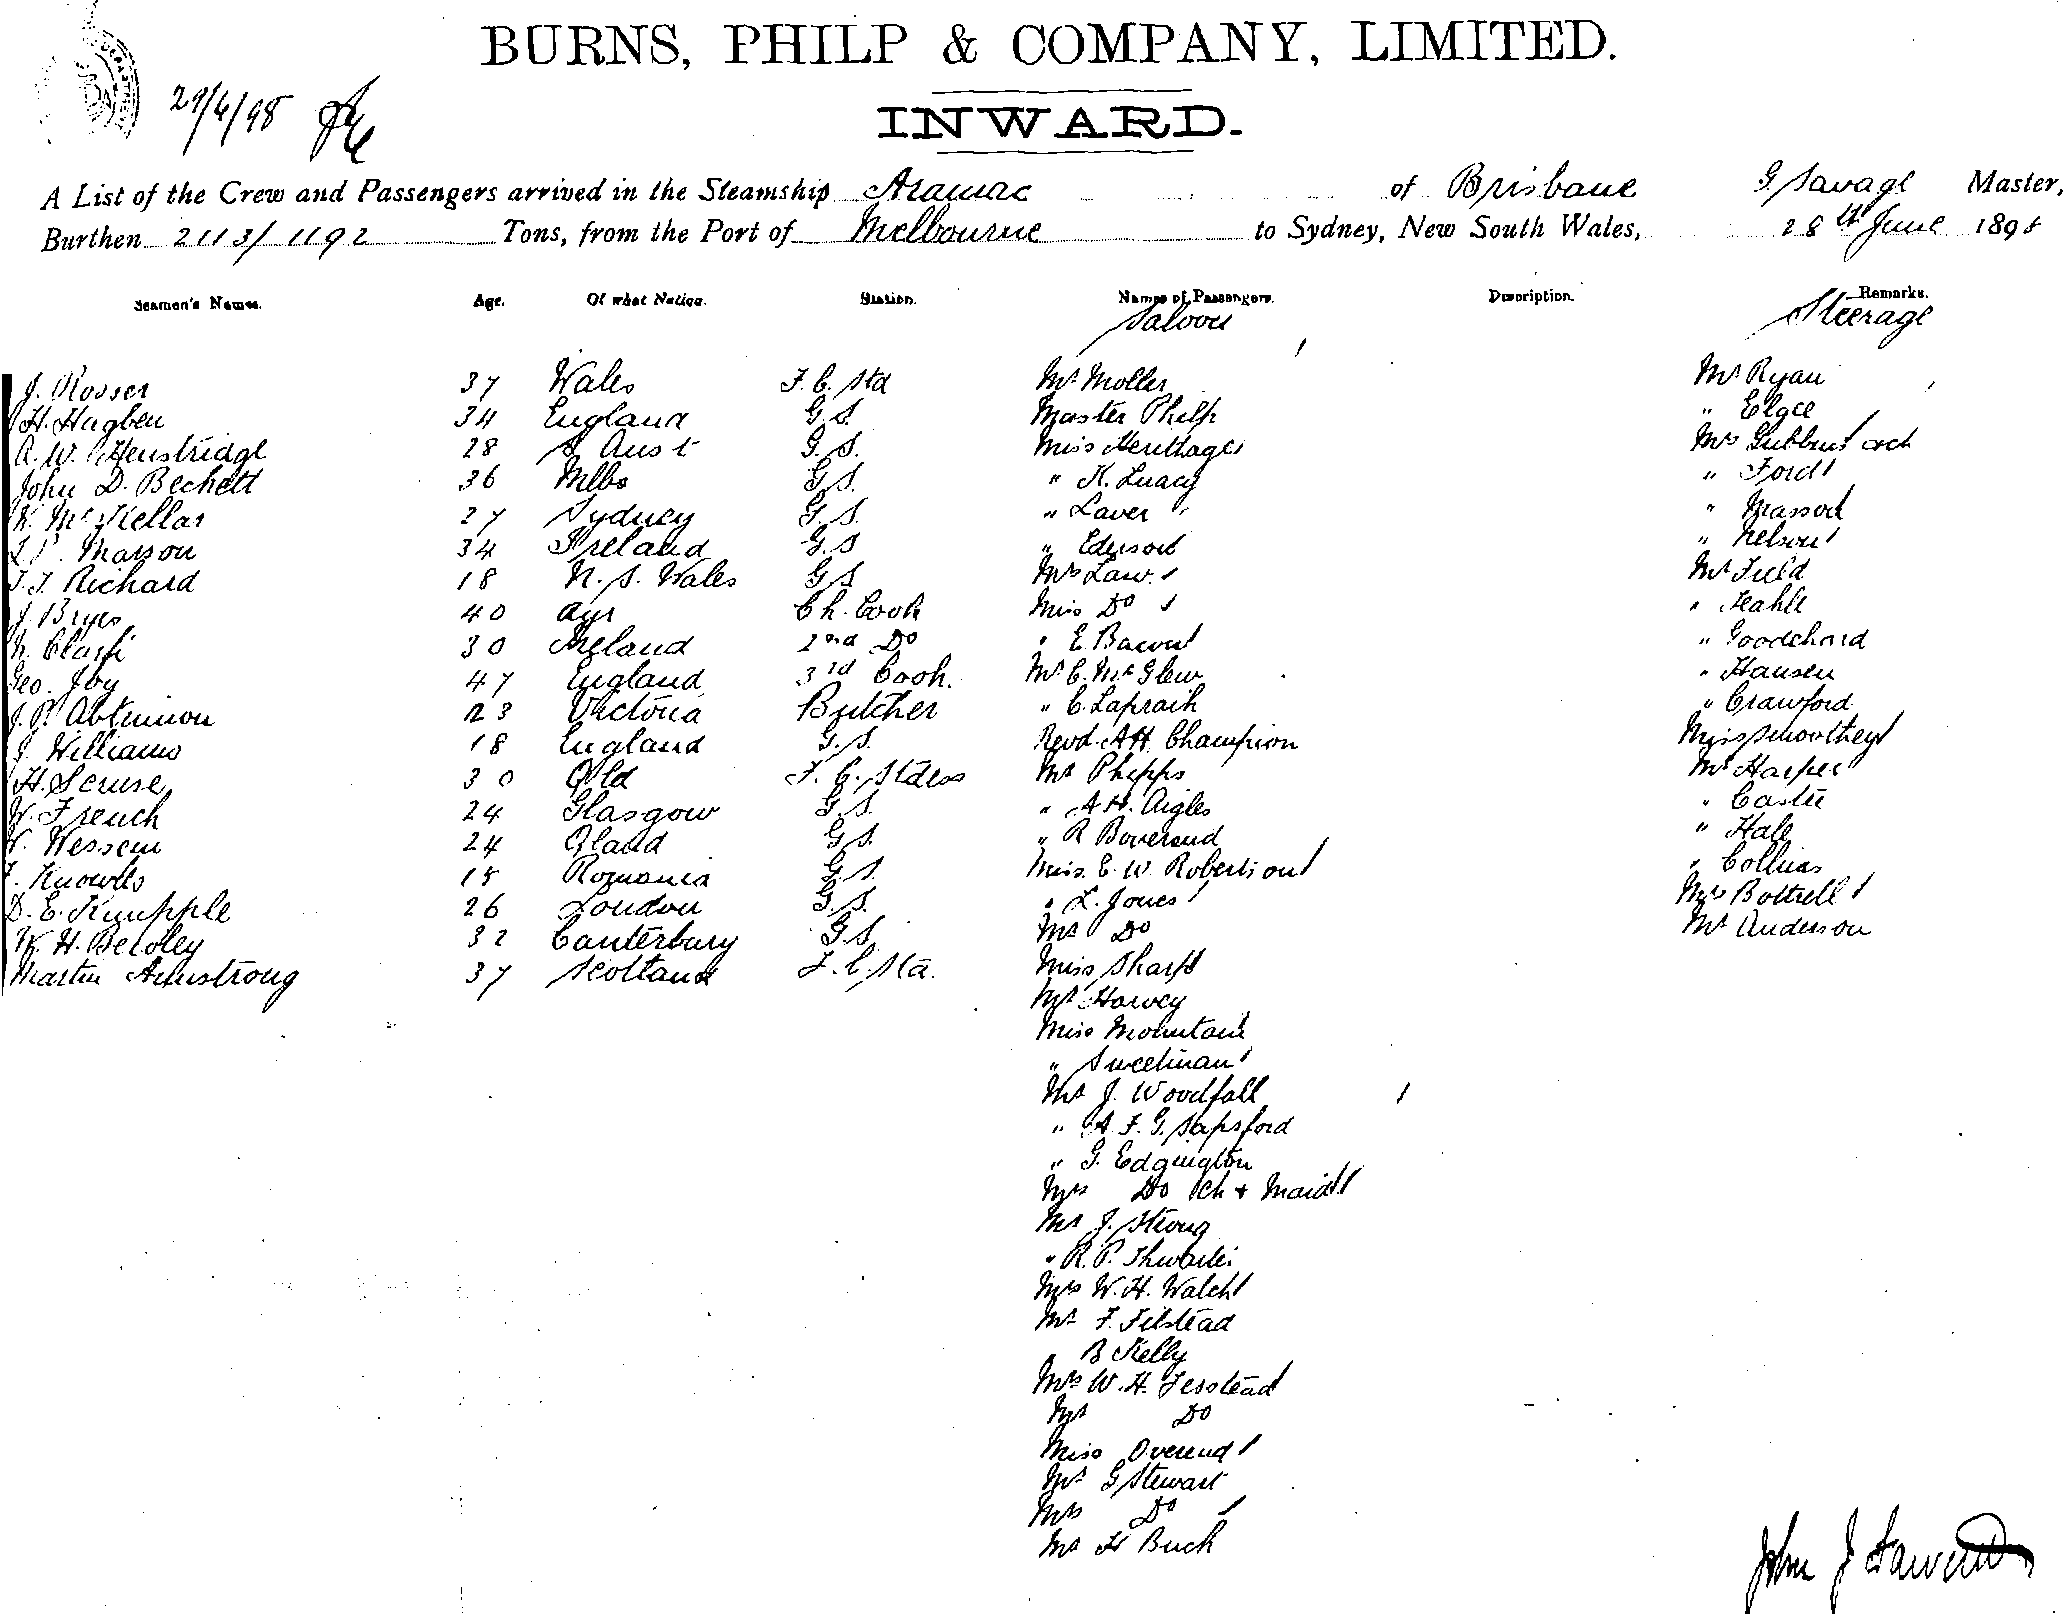 BURNS, PHILP & COMPANY, LIMITED.
29/6/98
INWARD.
A List of the Crew and Passengers arrived in the Steamship Aramac of Brisbane G Savage Master,
Burthen 2113/1192 Tons, from the Port of Melbourne to Sydney, New South Wales, 28th June 1898
Seamen's Names. Age. Of what Nation. Station. Names of Passengers. Description. Remarks.
Saloon Steerage
J. Rosser 37 Wales F.C. Std Mr Moller Mr Ryan
H. Hagben 34 England G.S. Master Philp " Elgee
A. W. Henstridge 28 S Aust G.S. Miss Heritage Mrs Gubbins & ch
John D. Beckett 36 Mlbo G.S. " K. Luacy " Ford
K. McKellar 27 Sydney G.S. " Laver " Masson
Marson 34 Ireland G.S " Ederson " Nelson
Richard 18 N. S. Wales G.S Mrs Law. Mr Field
J. Bryes 40 Ayr Ch. Cook Miss Do " Kahle
Clark 30 Ireland 2nd Do " E. Bacon " Goodchard
Geo. Joy 47 England 3rd Cook. Mr C. McGlew " Hansen
J. P. 23 Victoria Butcher " C. Lapraik " Crawford
J. Williams 18 England G.S. Revd. A H. Champion Miss Smoothey
H. Scruse 30 Qld F. C. Stdess Mr Phipps Mr Harper
W. French 24 Glasgow G.S. " A H. Aigles " Castle
Wessem 24 Oland G.S. " R Boverend " Hale
Knowles 18 Romania G.S. Miss. E. W. Robertson " Collins
D. E. Knupple 26 London G.S. " L. Jones Mrs Bottrell
W. H. Beioley 32 Canterbury G.S. Mr Do Mr Anderson
Martin Armstrong 37 Scotland F.C. Std. Miss Sharp
Mr Harvey
Miss Mountain
" Sweetman
Mr J. Woodfall
" A. F. G. Sapsford
" G. Edgington
Mrs Do 1ch + Maid
Mr J. Strong
" R. P. Thwaites
Mrs W. H. Walch
Mr F. Filstead
" B Kelly
Mrs W. H. Fesstead
Mr Do
Miss Overend
Mr G Stewart
Mrs Do
Mr H Buck
John J